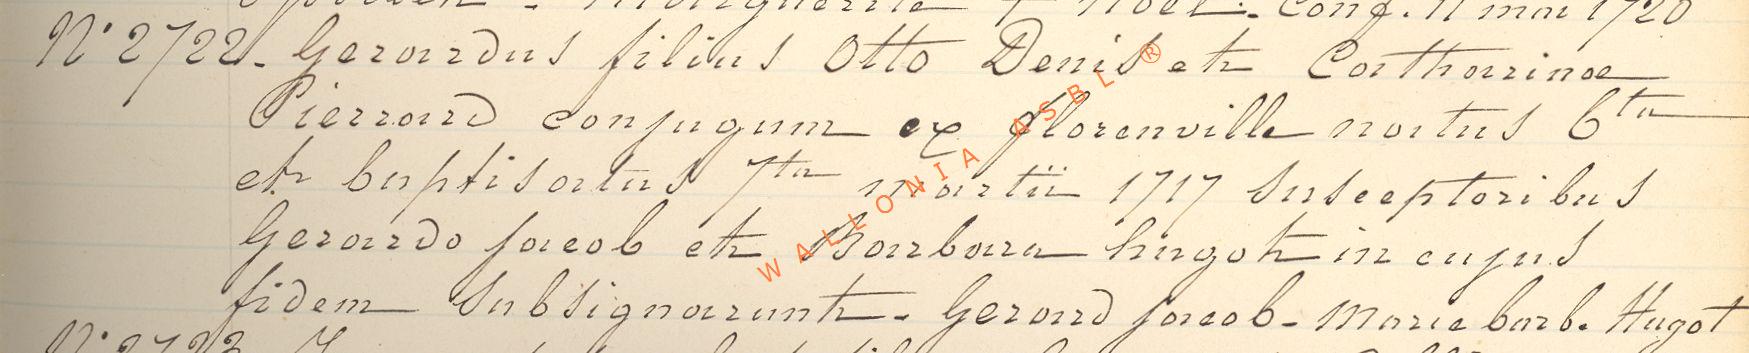 Marguerite + Noël. Conf. 11 mai 1720
N° 2722. Gerardus filius Otto Denis et Catharinae
Pierrard conjugum ex florenville natus 6ta
et baptisatus 7ta martii 1717 susceptoribus
Gerardo jacob et Barbara hugot in cujus
fidem subsignarunt. Gerard jacob. Marie barb. Hugot
N° 2723.
WALLONIA ASBL ®